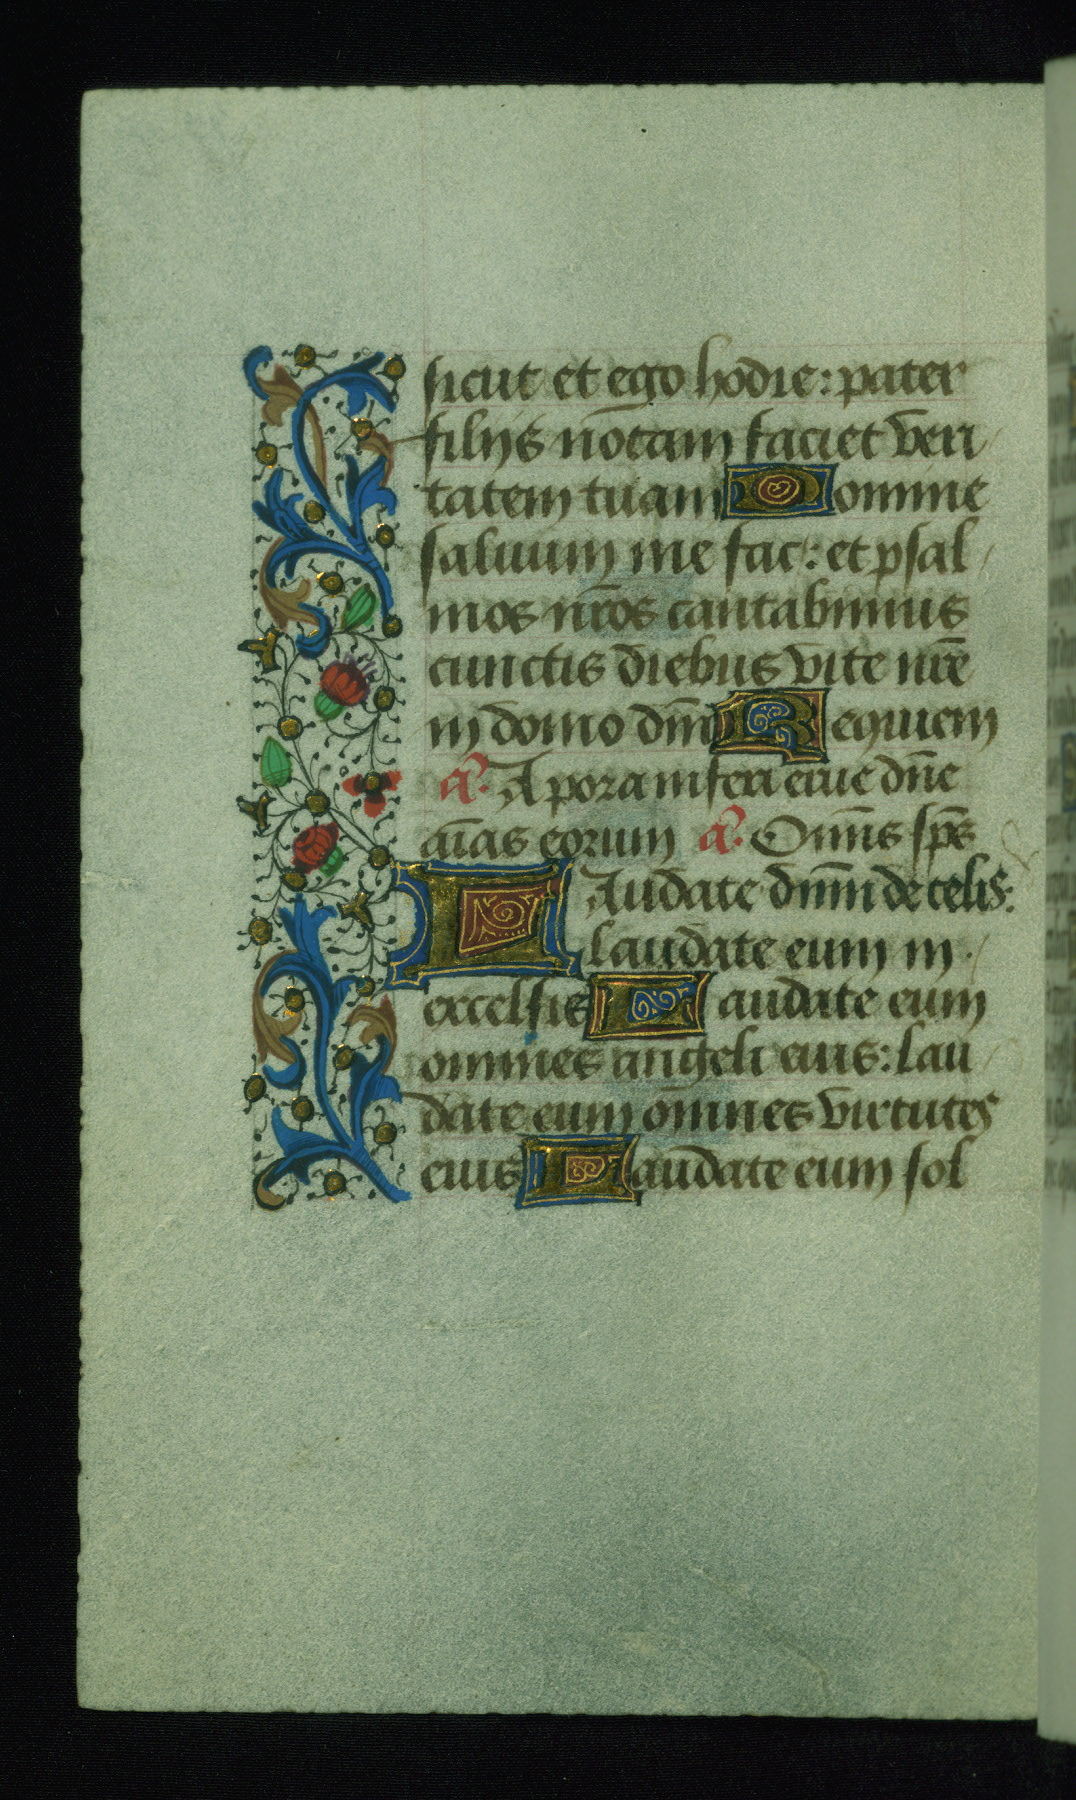 sicut et ego hodie: pater
filijs notam faciet veri
tatem tuam Domine
saluum me fac: et psal
mos nr̄os cantabimus
cunctis diebus vite nr̄e
in domo dn̄i Requiem
a᷑. A pora inferi erue dn̄e
aīas eorum a᷑. Om̄is sp̄s
Laudate dn̄m de celis:
laudate eum in
excelsis Laudate eum
omnes angeli eius: lau
date eum om̄nes virtutes
eius Laudate eum sol